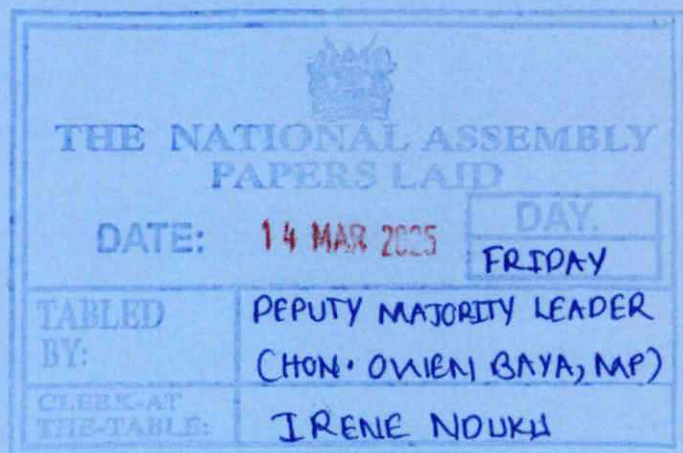 THE NATIONAL ASSEMBLY
PAPERS LAID
DATE: 14 MAR 2025
DAY.
FRIDAY
TABLED
BY:
DEPUTY MAJORITY LEADER
(HON. OWEN BAYA, MP)
CLERK-AT
THE-TABLE:
IRENE NDUKU